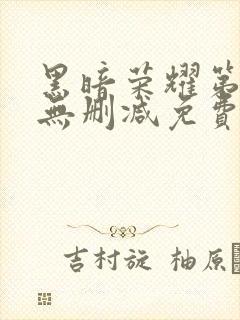 黑暗荣耀第
無删减免費
吉村旋 柚原